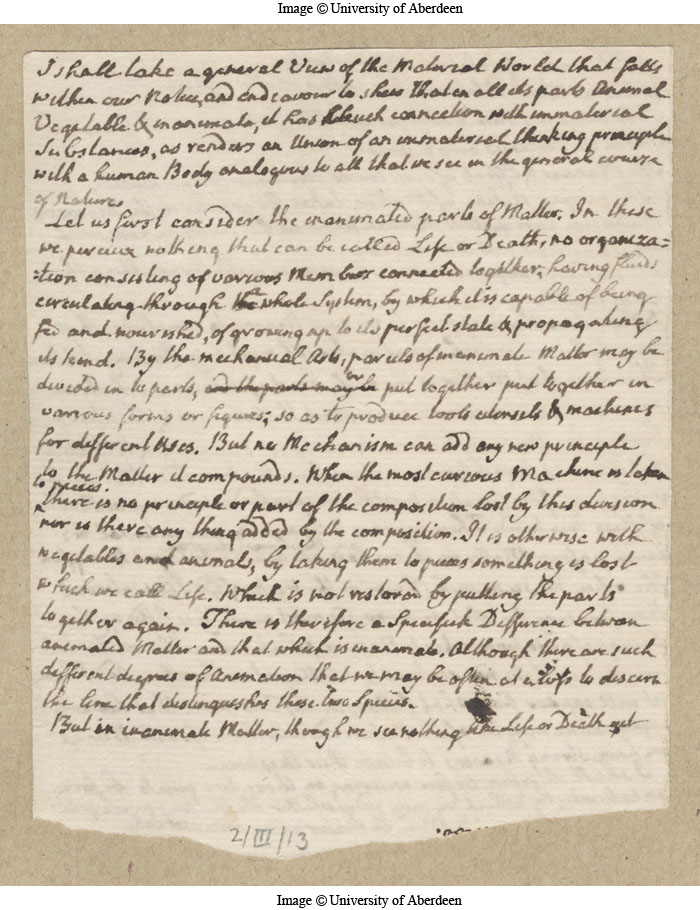 Image © University of Aberdeen
I shall take a general View of the Material World that falls
within our Notice, and endeavour to shew that in all its parts Animal
Vegitable & inanimate, it has such connection with immaterial
Substances, as renders an Union of an immaterial thinking principle
with a human Body analogous to all that we see in the general course
of Nature.
Let us first consider the inanimated parts of Matter. In these
we perceive nothing that can be called Life or Death, no organiza=
=tion consisting of various Members connected together; having fluids
circulating through the whole System, by which it is capable of being
fed and nourished, of growing up to its perfect state & propagating
its kind. By the mechanical Arts, parcels of inanimate Matter may be
divided in to parts, and the parts may be or put together put together in
various forms or figures; so as to produce tools utensils & machines
for different Uses. But no Mechanism can add any new principle
to the Matter it compounds. When the most curious Machine is taken
to pieces
There is no principle or part of the composition lost by this division
nor is there any thing added by the composition. It is otherwise with
vegitables and animals, by taking them to pieces something is lost
which we call Life. Which is not restored by putting the parts
together again. There is therefore a Specifick Difference between
animated Matter and that which is inanimate. Although there are such
different degrees of Animation that we may be often at a loss to discern
the line that distinguishes these two Species.
But in inanimate Matter, though we see nothing like Life or Death yet
2/III/13
Image © University of Aberdeen